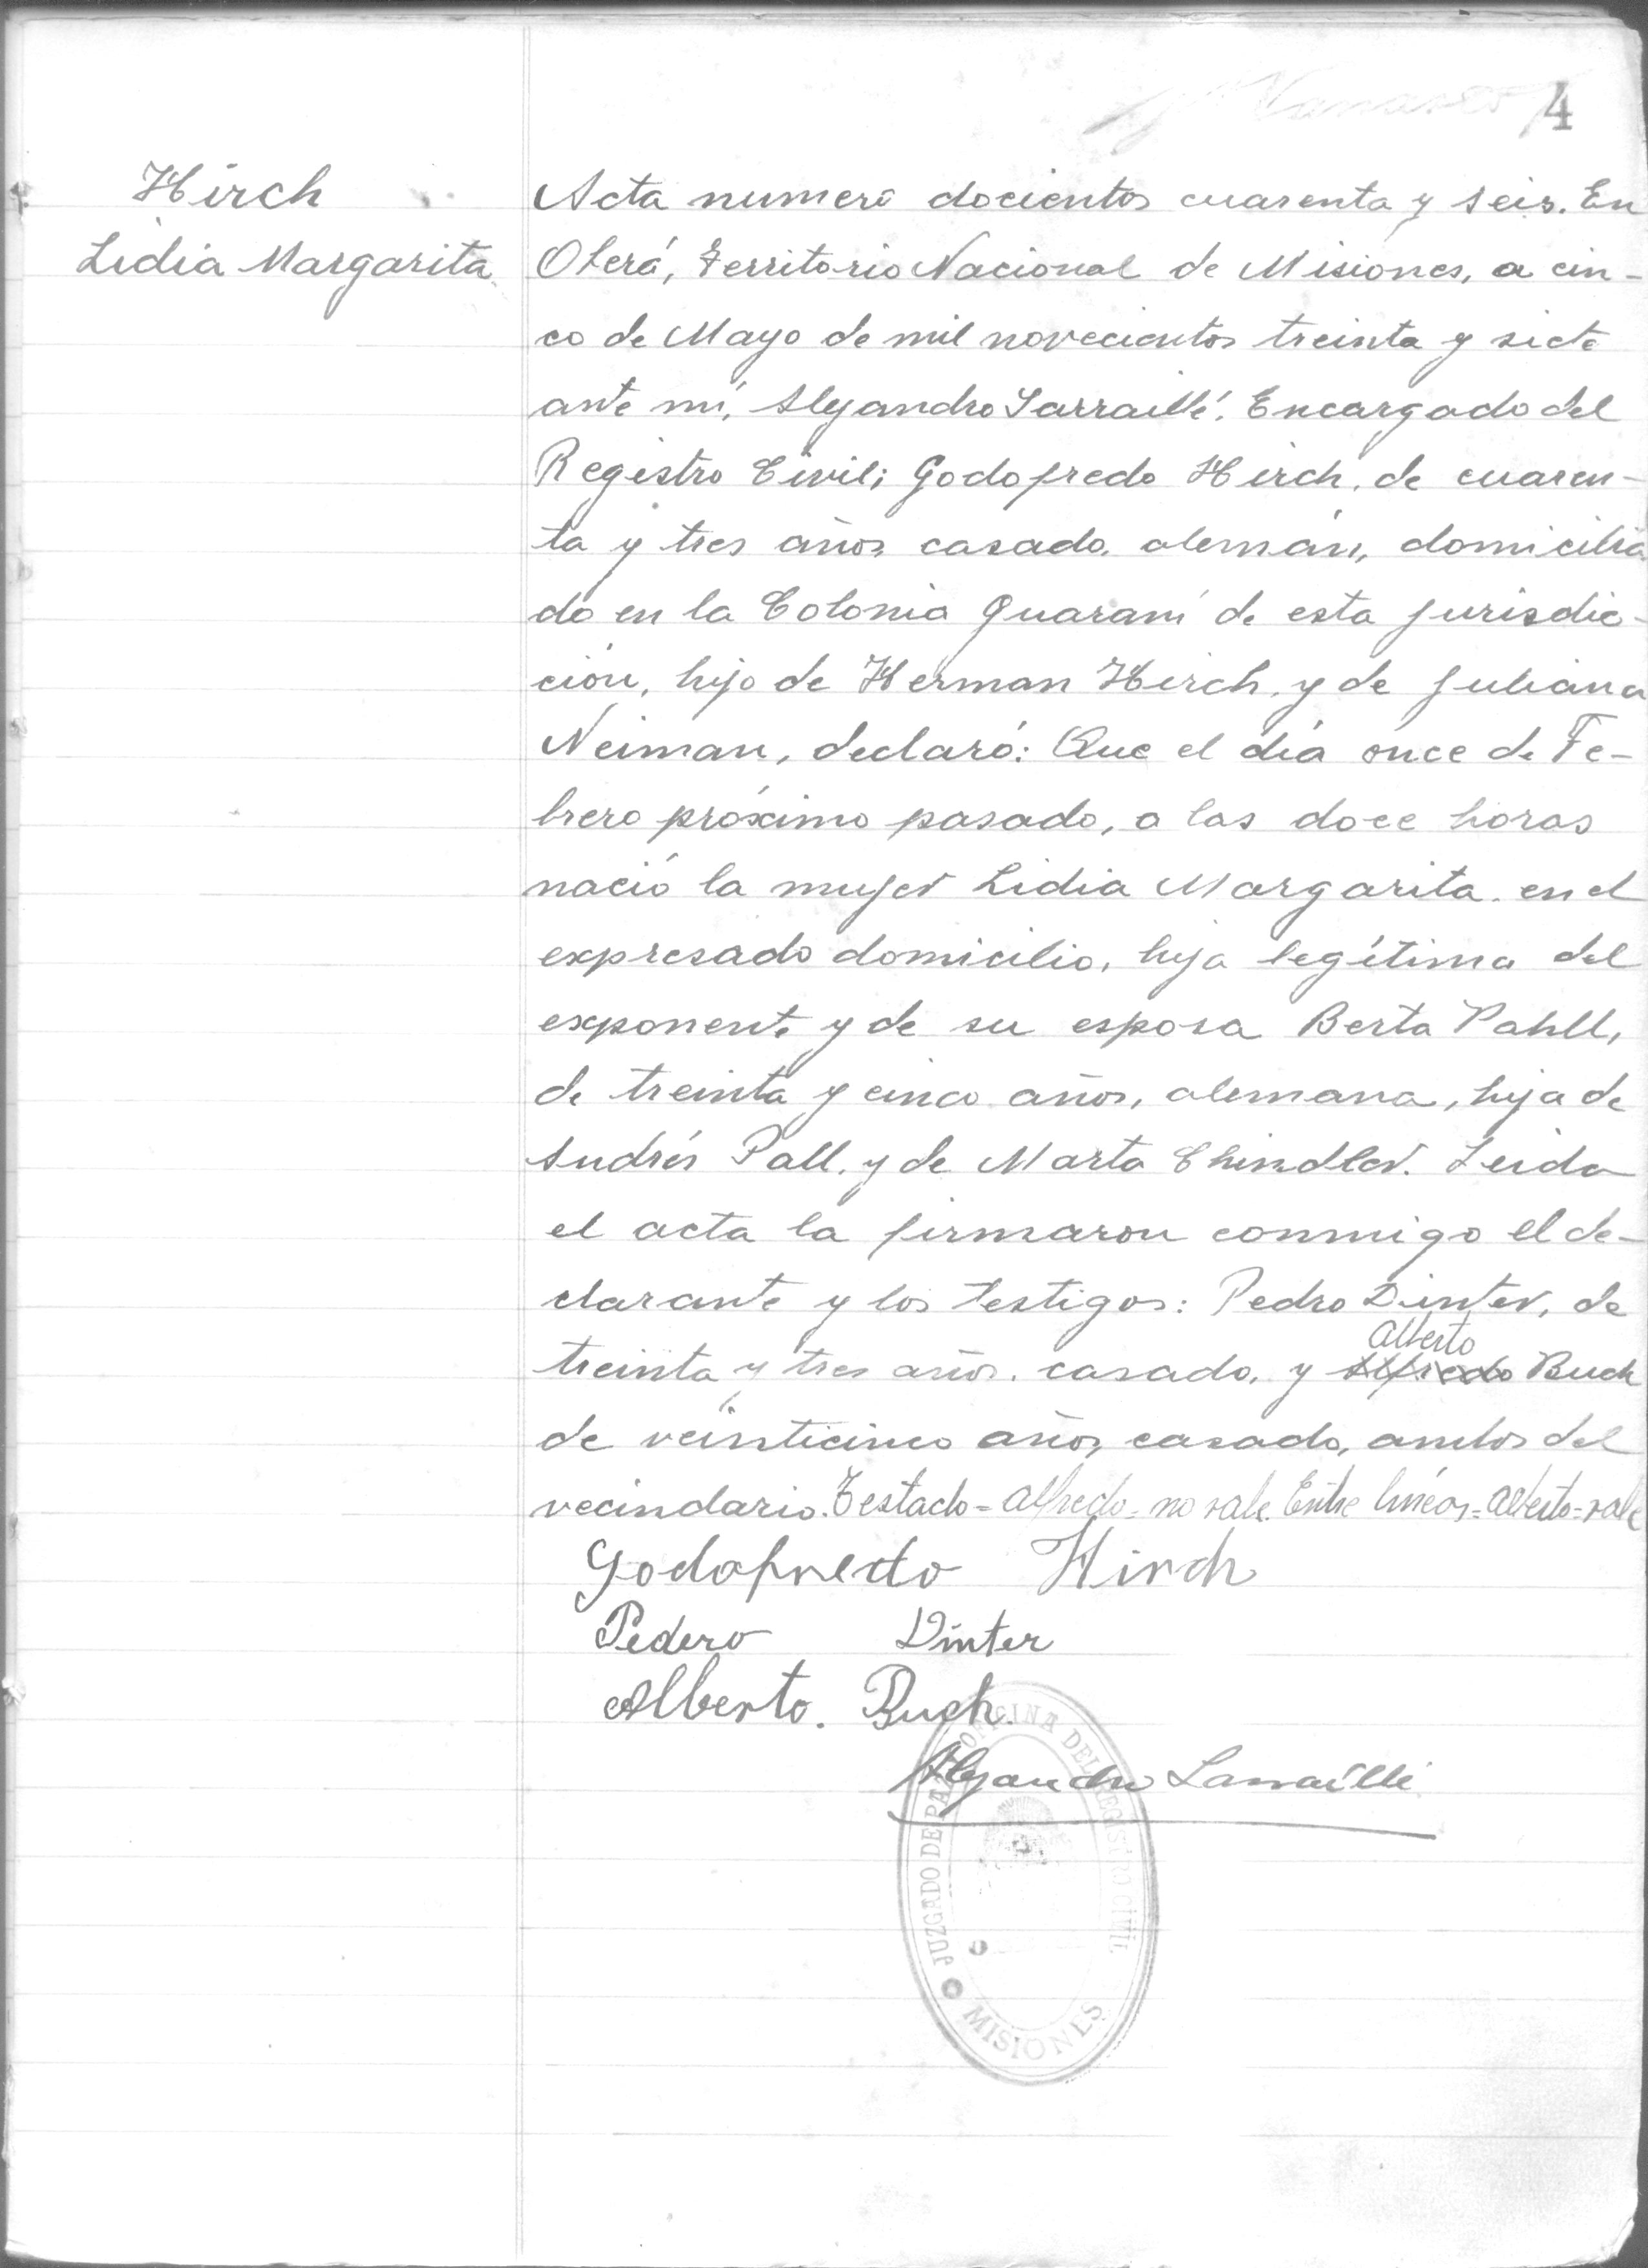 4
Hirch
Lidia Margarita
Acta numero docientos cuarenta y seis. En
Oberá, Territorio Nacional de Misiones, a cin-
co de Mayo de mil novecientos treinta y siete
ante mí, Alejandro Larraillé. Encargado del
Registro Civil; Godofredo Hirch, de cuaren-
ta y tres años, casado, alemán, domicilia
do en la Colonia Guaraní de esta jurisdic-
ción, hijo de Herman Hirch, y de Juliana
Neiman, declaró: Que el día once de Fe-
brero próximo pasado, a las doce horas
nació la mujer Lidia Margarita, en el
expresado domicilio, hija legítima del
exponente y de su esposa Berta Pahll,
de treinta y cinco años, alemana, hija de
Andrés Pall. y de Marta Chindler. Leida
el acta la firmaron conmigo el de-
clarante y los testigos: Pedro Dinter, de
Alberto
treinta y tres años, casado, y Alfredo Buch
de veinticinco años, casado, ambos del
vecindario. Testado=Alfredo=no vale. Entre líneas=Alberto=vale
Godofredo Hirch
Pedero Dinter
Alberto. Buch.
Alejandro Larraillé
JUZGADO DE PAZ OFICINA DEL REGISTRO CIVIL
MISIONES